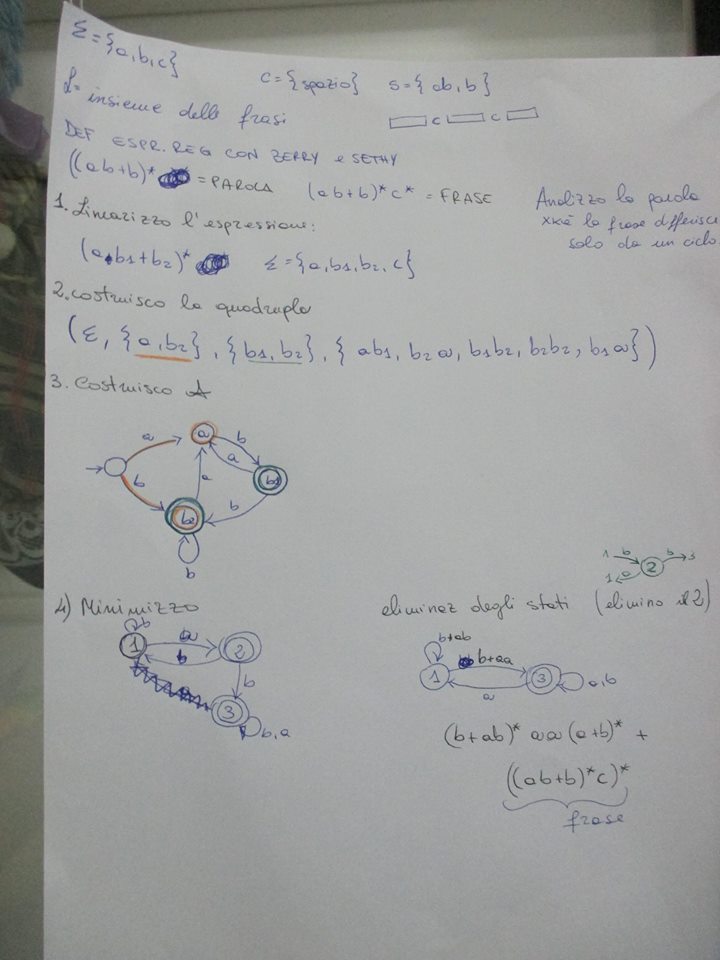 Σ={a,b,c}
C={spazio} S={ab,b}
L= insieme delle frasi
C C
DEF ESPR.REG CON ZERRY e SETHY
((ab+b)* = PAROLA (ab+b)*c* = FRASE
Analizzo la parola
xkè la frase differisce
solo da un ciclo.
1. Linearizzo l'espressione:
(a b1+b2)* Σ={a,b1,b2,c}
2. costruisco la quadrupla
(Σ, {a,b2}, {b1,b2}, {ab1, b2a, b1b2, b2b2, b1a})
3. Costruisco A
a a b
a b1
b a b
b2
b
1 b 2 b 3
1 a
4) Minimizzo eliminaz degli stati (elimino il 2)
b b+ab
1 a 2 b+aa
b 1 3 a,b
b a
3 b,a
(b+ab)* aa(a+b)* +
((ab+b)*c)*
frase